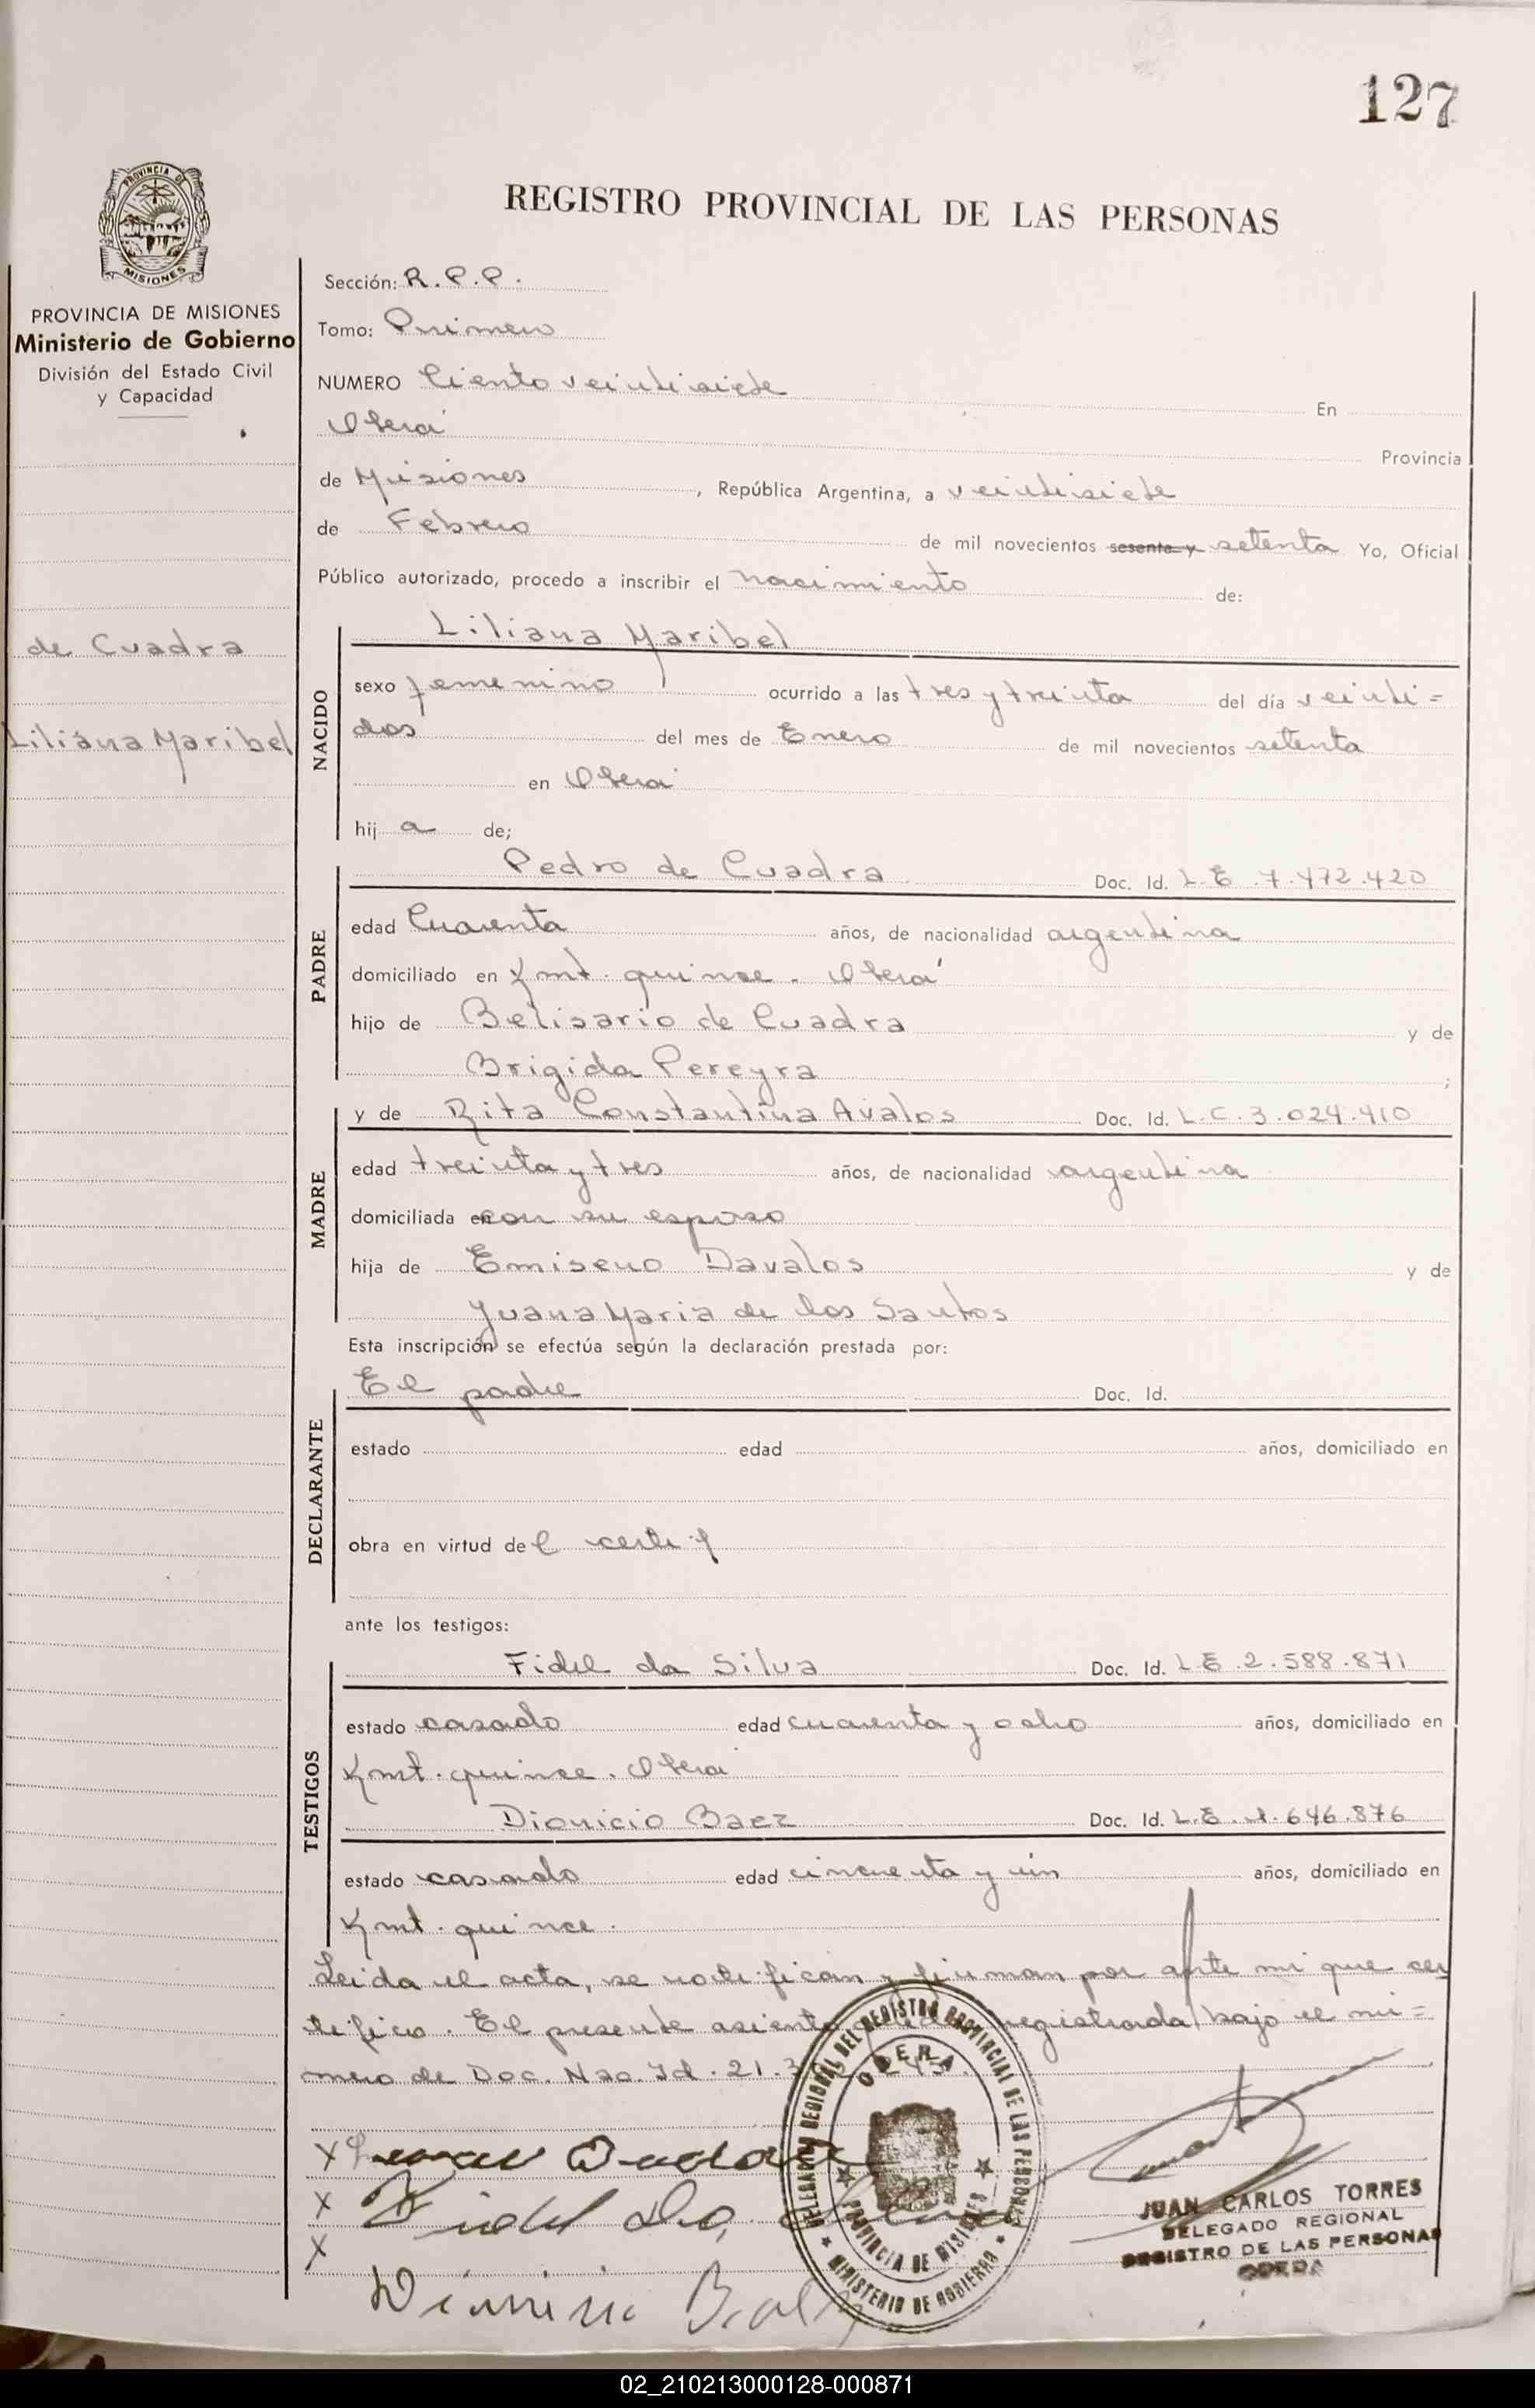 127
PROVINCIA DE
MISIONES
REGISTRO PROVINCIAL DE LAS PERSONAS
PROVINCIA DE MISIONES
Ministerio de Gobierno
División del Estado Civil
y Capacidad
de Cuadra
Liliana Maribel
Sección: R.P.P.
Tomo: Primero
NUMERO Ciento veintisiete En
Oberá Provincia
de Misiones, República Argentina, a veintisiete
de Febrero de mil novecientos sesenta y setenta Yo, Oficial
Público autorizado, procedo a inscribir el nacimiento de:
NACIDO
Liliana Maribel
sexo femenino ocurrido a las tres y treinta del día veinti=
dos del mes de Enero de mil novecientos setenta
en Oberá
hij a de;
PADRE
Pedro de Cuadra Doc. Id. L.E. 7.472.420
edad Cuarenta años, de nacionalidad argentina
domiciliado en Kmt. quince. Oberá
hijo de Belisario de Cuadra y de
Brigida Pereyra ;
MADRE
y de Rita Constantina Avalos Doc. Id. L.C. 3.024.410
edad treinta y tres años, de nacionalidad argentina
domiciliada en con su esposo
hija de Davalos y de
Juana Maria de los Santos
Esta inscripción se efectúa según la declaración prestada por:
DECLARANTE
El padre Doc. Id.
estado edad años, domiciliado en
obra en virtud del certif
ante los testigos:
TESTIGOS
Fidel da Silva Doc. Id. L.E. 2.588.871
estado casado edad cuarenta y ocho años, domiciliado en
Kmt. quince. Oberá
Dionicio Baez Doc. Id. L.E. 646.876
estado casado edad cincuenta y un años, domiciliado en
Kmt. quince.
Leida el acta, se notifican y firman por ante mi que cer
tifico. El presente asiento registrada bajo el nú=
mero de Doc. Nac. Id. 21.
DELEGACION REGIONAL DEL REGISTRO PROVINCIAL DE LAS PERSONAS
OBERA
PROVINCIA DE MISIONES
MINISTERIO DE GOBIERNO
X
X Fidel Da Silva
X
JUAN CARLOS TORRES
DELEGADO REGIONAL
REGISTRO DE LAS PERSONAS
OBERA
02_210213000128-000871